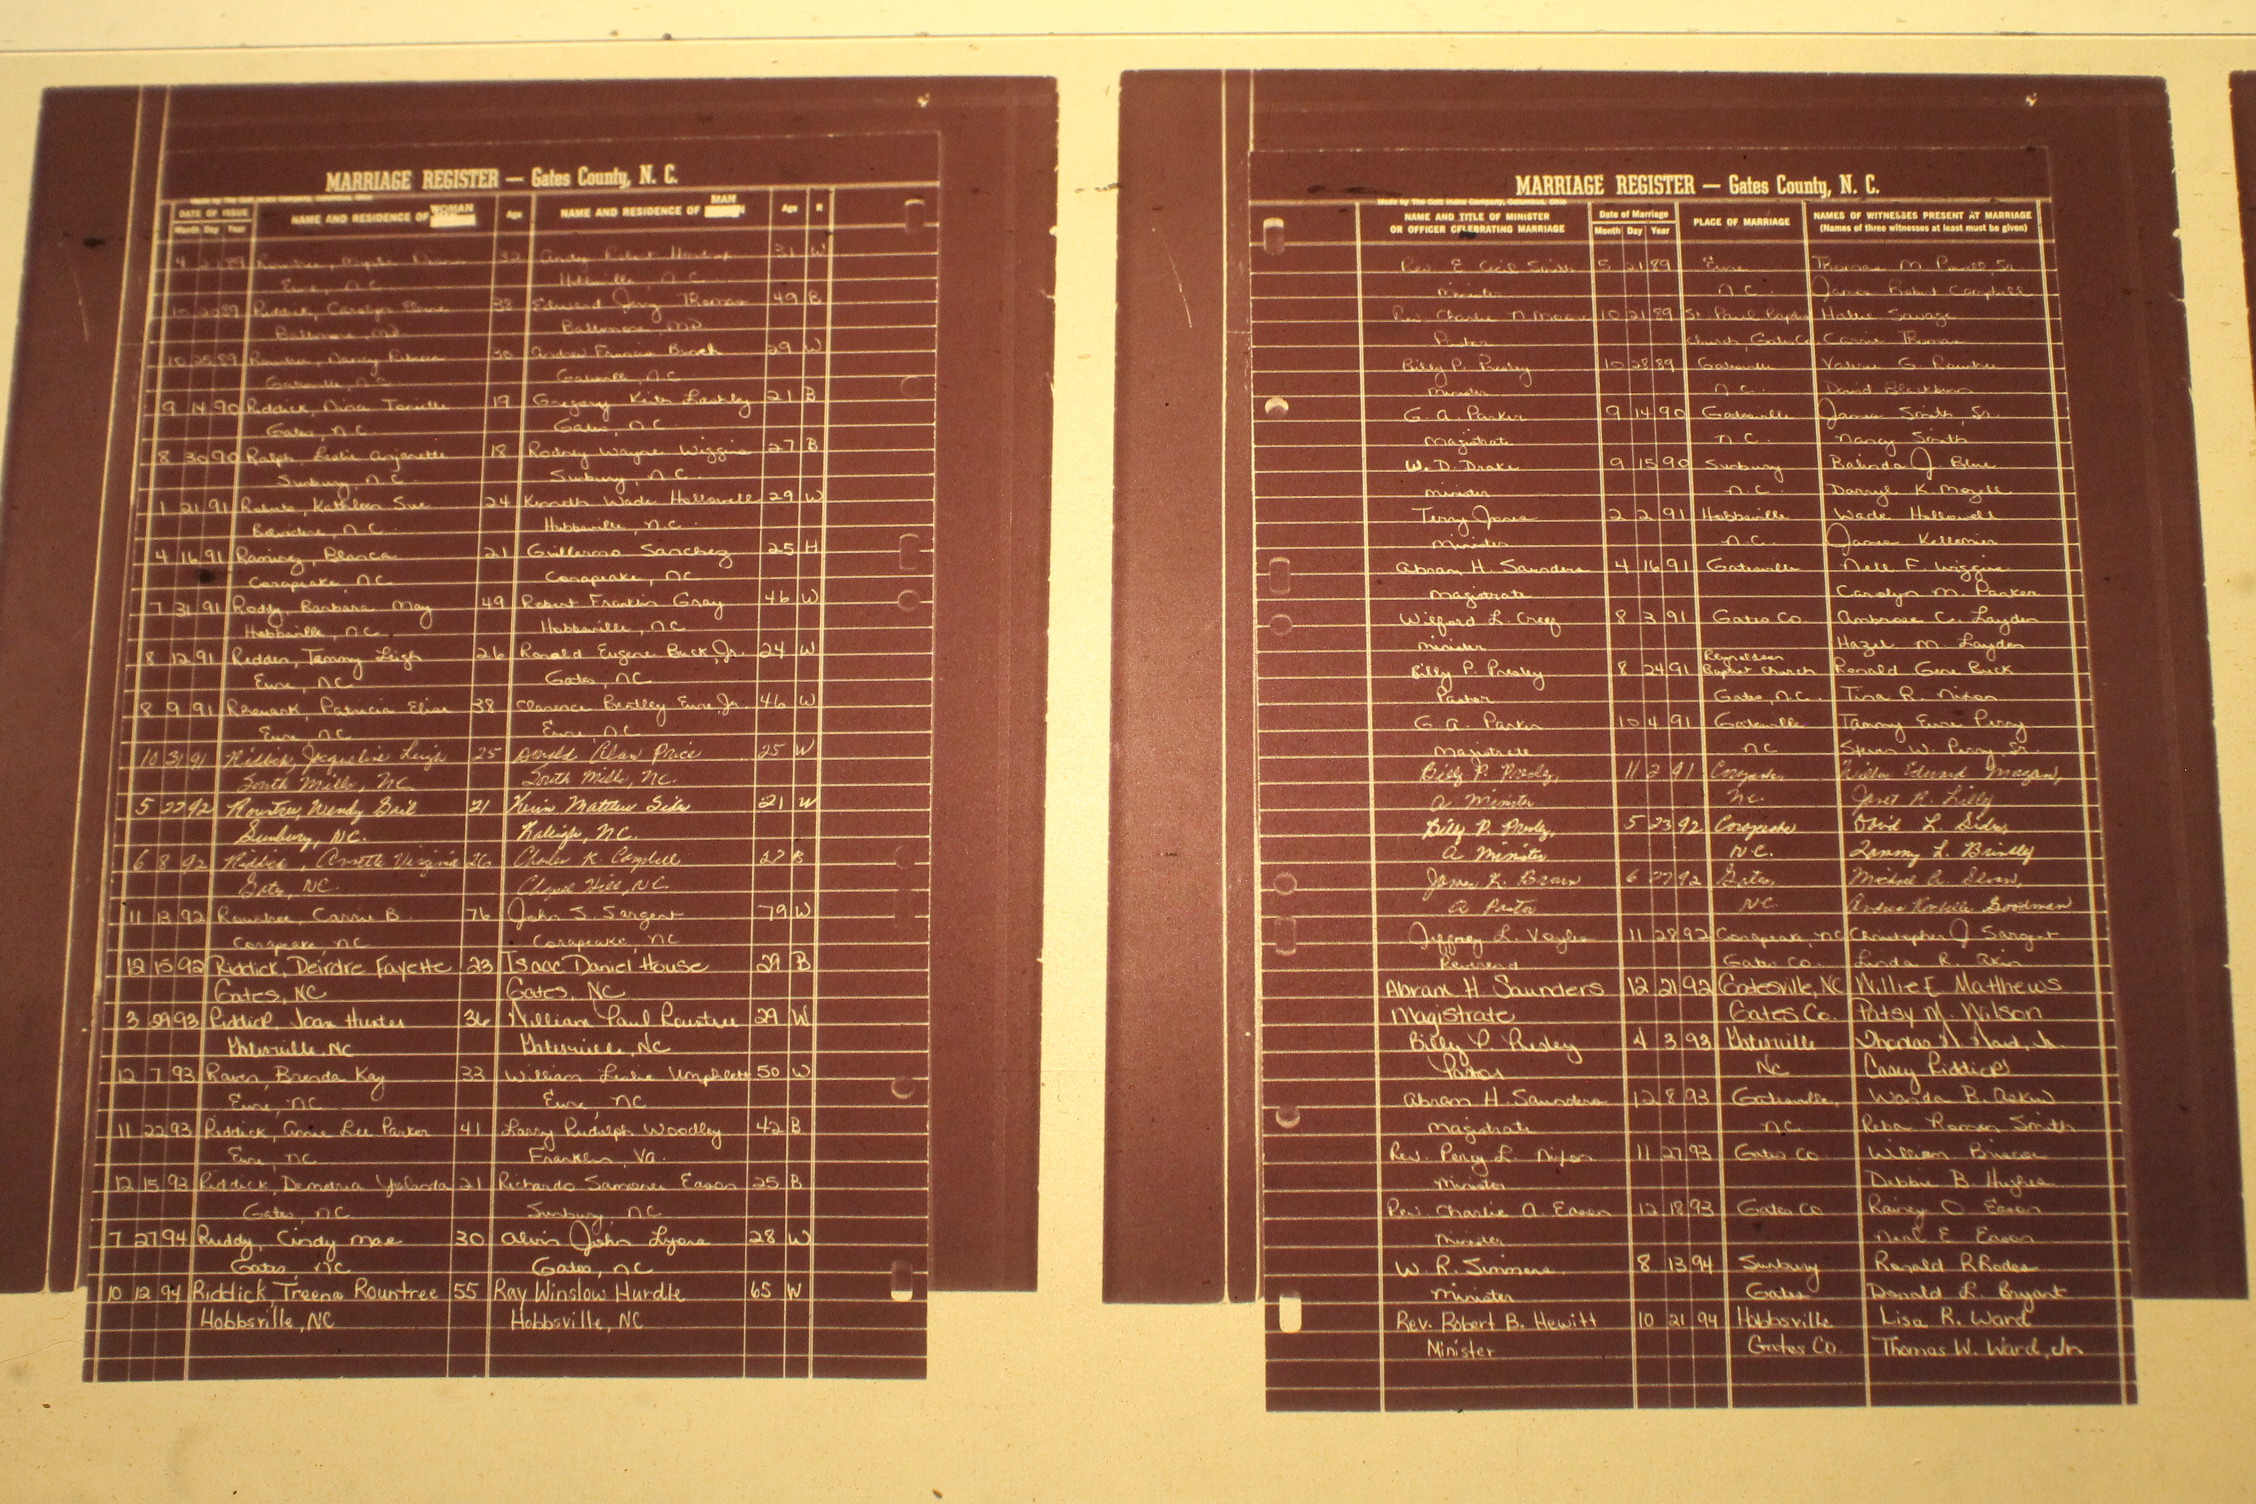 MARRIAGE REGISTER — Gates County, N. C.
DATE OF ISSUE
Month Day Year
NAME AND RESIDENCE OF WOMAN
Age
NAME AND RESIDENCE OF MAN
Age
R
4 21 89 Rountree, 32 Andy Robert 31 W
Eure, N.C. Hobbsville, N.C.
10 20 89 Riddick, Carolyn 38 Edward Jerry Thomas 49 B
Baltimore, MD Baltimore, MD
10 25 89 Rountree, Nancy 30 Andrew Francis 29 W
Gatesville, N.C. Gatesville, N.C.
9 14 90 Riddick, Nina 19 Gregory Keith Lashley 21 B
Gates, N.C. Gates, N.C.
8 30 90 Ralph, Leslie Anjanette 18 Rodney Wayne Wiggins 27 B
Sunbury, N.C. Sunbury, N.C.
1 21 91 Roberts, Kathleen Sue 24 Kenneth Wade Hollowell 29 W
Belvidere, N.C. Hobbsville, N.C.
4 16 91 Ramirez, Blanca 21 Guillermo Sanchez 25 H
Corapeake, NC Corapeake, NC
7 31 91 Roddy, Barbara May 49 Robert Franklin Gray 46 W
Hobbsville, NC Hobbsville, NC
8 12 91 Redden, Tammy Leigh 26 Ronald Eugene Buck, Jr. 24 W
Eure, NC Gates, NC
8 9 91 Patricia Elise 38 Clarence Bentley Eure, Jr. 46 W
Eure, NC Eure, NC
10 31 91 Riddick, Jacqueline Leigh 25 Donald Alan Price 25 W
South Mills, NC South Mills, NC.
5 22 92 Rountree, Wendy Gail 21 Kevin Matthew Sides 21 W
Sunbury, NC. Raleigh, NC.
6 8 92 Riddick, Annette Virginia 26 Charles K. Campbell 27 B
Gates, NC. Chapel Hill, NC.
11 13 92 Rountree, Carrie B. 76 John S. Sargent 79 W
Corapeake, NC Corapeake, NC
12 15 92 Riddick, Deirdre Fayette 23 Isaac Daniel House 29 B
Gates, NC Gates, NC
3 29 93 Riddick, Joan Hunter 36 William Paul Rountree 29 W
Gatesville, NC Gatesville, NC
12 7 93 Raven, Brenda Kay 33 William Leslie Umphlett 50 W
Eure, NC Eure, NC
11 22 93 Riddick, Annie Lee Parker 41 Larry Rudolph Woodley 42 B
Eure, NC Franklin, Va.
12 15 93 Riddick, Demetria Yolanda 21 Richardo Eason 25 B
Gates, NC Sunbury, NC
7 27 94 Ruddy, Cindy Mae 30 Alvin John Lyons 28 W
Gates, NC Gates, NC
10 12 94 Riddick, Treena Rountree 55 Ray Winslow Hurdle 65 W
Hobbsville, NC Hobbsville, NC
MARRIAGE REGISTER — Gates County, N. C.
Made by The Cott Index Company, Columbus, Ohio
NAME AND TITLE OF MINISTER
OR OFFICER CELEBRATING MARRIAGE
Date of Marriage
Month Day Year
PLACE OF MARRIAGE
NAMES OF WITNESSES PRESENT AT MARRIAGE
(Names of three witnesses at least must be given)
Rev. E. Cecil Smith 5 21 89 Eure Thomas M. Powell, Sr.
Minister N.C. James Robert Campbell
Rev. Charlie N. Moore 10 21 89 St. Paul Baptist Hattie Savage
Pastor Church, Gates Co. Carrie Thomas
Billy P. Presley 10 28 89 Gatesville Valerie G. Rountree
Minister N.C. David Blackburn
G. A. Parker 9 14 90 Gatesville James Smith, Sr.
Magistrate N.C. Nancy Smith
W. D. Drake 9 15 90 Sunbury Balinda J. Blue
Minister N.C. Darryl K. Mozell
Terry Jones 2 2 91 Hobbsville Wade Hollowell
Minister N.C. James
Abram H. Saunders 4 16 91 Gatesville Nell F. Wiggins
Magistrate Carolyn M. Parker
Wilford L. Creef 8 3 91 Gates Co. Ambrose C. Layden
Minister Hazel M. Layden
Reynoldson
Billy P. Presley 8 24 91 Baptist Church Ronald Gene Buck
Pastor Gates, N.C. Tina R. Nixon
G. A. Parker 10 4 91 Gatesville Tammy Eure Perry
Magistrate NC Steven W. Perry, Sr.
Billy P. Presley, 11 2 91 Corapeake Edward Morgan,
A Minister NC. Janet R. Lilley
Billy P. Presley, 5 23 92 Corapeake David L. Sides,
A Minister NC. Tammy L. Brinkley
James K. Brown 6 27 92 Gates, Michael A. Sloan,
A Pastor NC Andrea Goodman
Jeffrey L. Voyles 11 28 92 Corapeake, NC Christopher J. Sargent
Reverend Gates Co. Linda R. Akin
Abram H. Saunders 12 21 92 Gatesville, NC Willie E. Matthews
Magistrate Gates Co. Patsy M. Wilson
Billy P. Presley 4 3 93 Gatesville Thomas W. Ward, Jr.
Pastor NC Casey Riddick
Abram H. Saunders 12 8 93 Gatesville, Wanda B. Askew
Magistrate NC Reba Roman Smith
Rev. Percy L. Nixon 11 27 93 Gates Co William Briscoe
Minister Debbie B. Hughes
Rev. Charlie A. Eason 12 18 93 Gates Co Rainey O. Eason
Minister Neal E. Eason
W. R. Simmons 8 13 94 Sunbury Ronald P. Rhodes
Minister Gates Donald L. Bryant
Rev. Robert B. Hewitt 10 21 94 Hobbsville Lisa R. Ward
Minister Gates Co. Thomas W. Ward, Jr.